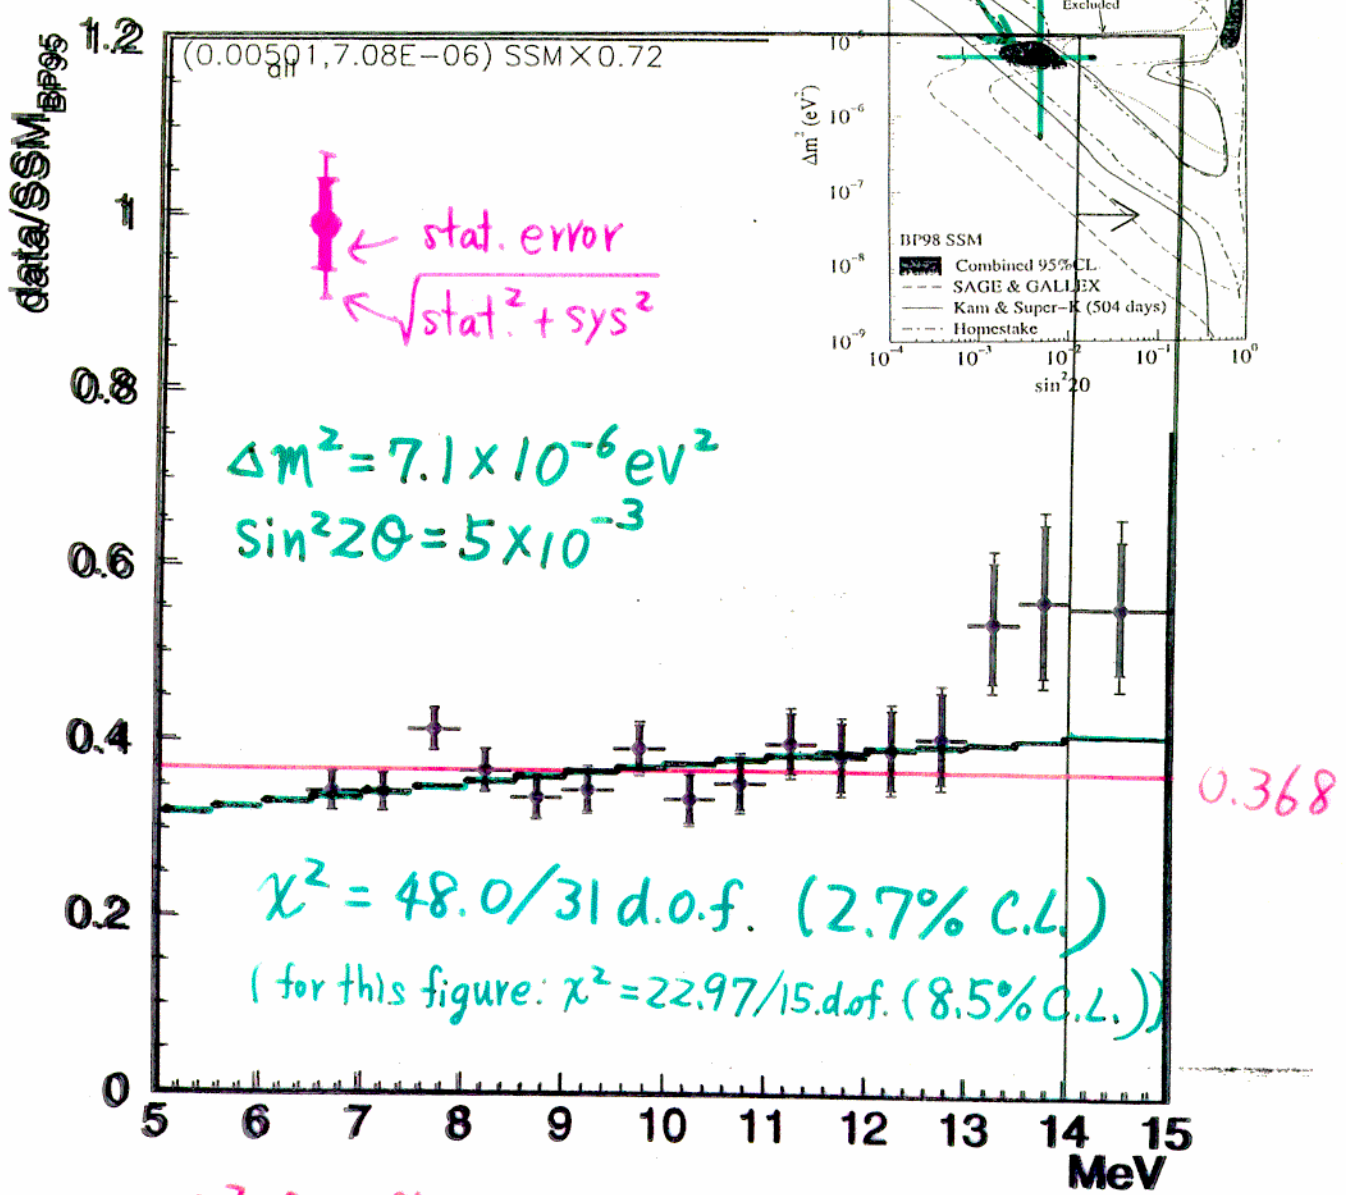 data/SSM_BP95
(0.00501,7.08E-06) SSM×0.72
all
stat. error
√(stat.² + sys²)
Δm² = 7.1 × 10⁻⁶ eV²
sin²2θ = 5 × 10⁻³
0.368
χ² = 48.0/31 d.o.f. (2.7% C.L.)
(for this figure: χ² = 22.97/15.d.o.f. (8.5% C.L.))
1.2
1
0.8
0.6
0.4
0.2
0
5 6 7 8 9 10 11 12 13 14 15
MeV
Excluded
Δm² (eV²)
10⁻⁵
10⁻⁶
10⁻⁷
10⁻⁸
10⁻⁹
BP98 SSM
Combined 95%CL
SAGE & GALLEX
Kam & Super-K (504 days)
Homestake
10⁻⁴ 10⁻³ 10⁻² 10⁻¹ 10⁰
sin²2θ